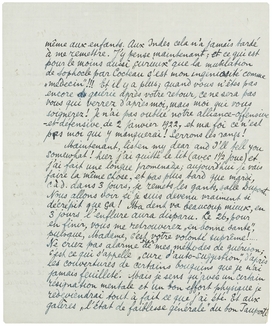 même aux enfants. Aux Indes cela n'a jamais tardé
à me remettre. J'y pense maintenant, et ce qui est
pour le moins aussi curieux que la mutilation
de Sophocle par Cocteau c'est mon ingénuosité comme
médecin!!! Et il y a plus; quand vous n'êtes pas
encore guérie après votre retour, ce ne sera pas
vous qui verrez d'après moi, mais moi qui vous
soignerez! Je n'ai pas oublié notre alliance offensive
et défensive de 2 janvier 1922, et ma foi ce n'est
pas moi que y manquerais! Serrons les rangs!
Maintenant, listen my dear and I'll tell you
somewhat! hier j'ai quitté le lit (avec 1½ pouce) et
j'ai fait une longue promenade; aujourd'hui je vais
faire la même chose, et pas plus tard que mardi,
c.à.d. dans 3 jours, je remets les gants, salle Dupont
Nous allons voir si je suis devenu vraiment si
décrépit que ça! Ma dent va beaucoup mieux, en
3 jours l'enflure aura disparu. Le 26, pour
en finir, vous me retrouverez "en bonne santé",
puisque, Madame, c'est votre volonté suprême!...
Ne criez pas alarme à mes méthodes de guérison,
c'est ce qui s'appelle "cure d'auto-suggestion", d'après
les couvertures de certains bouquins que je n'ai
jamais feuilleté. Mais je sens qu'avec un certain
résignation mentale et un bon effort physique je
redeviendrai tout à fait ce que j'ai été. Et aux
galères "l'État de faiblesse générale" du bon